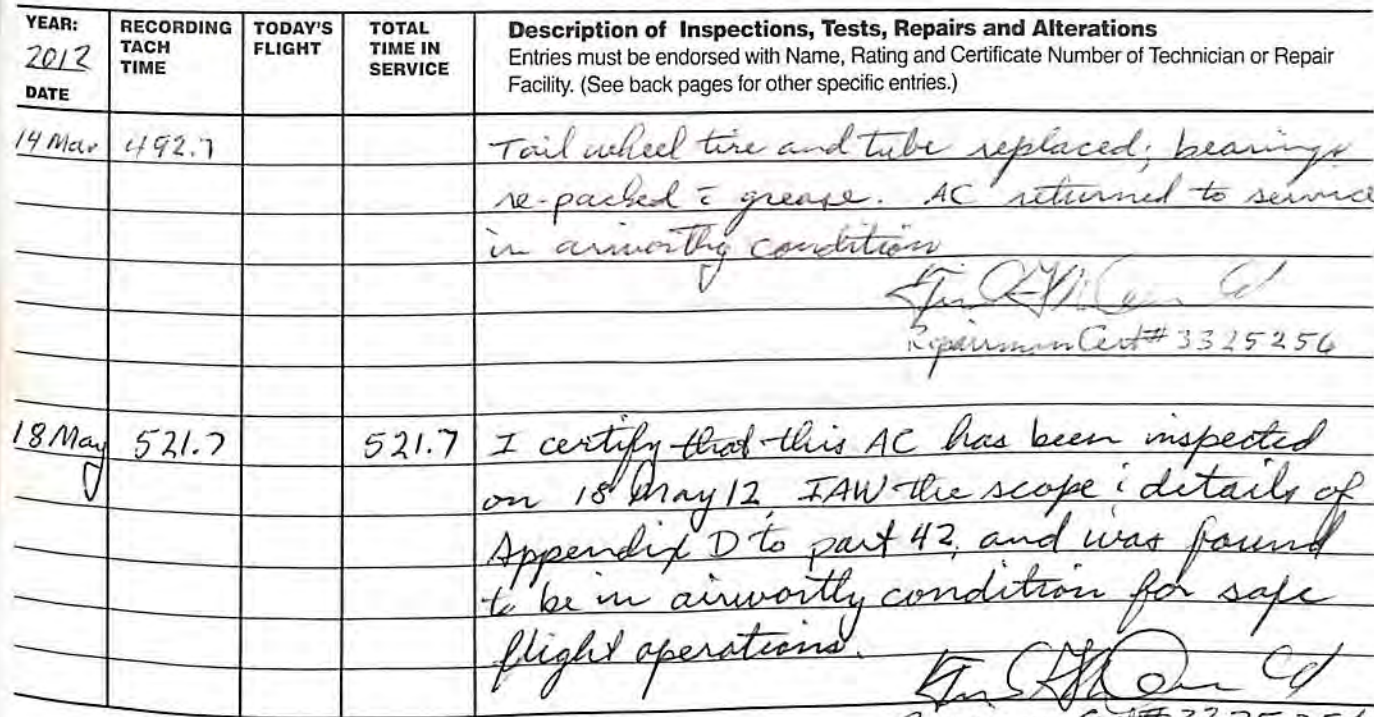 YEAR: 2012 DATE
RECORDING TACH TIME
TODAY'S FLIGHT
TOTAL TIME IN SERVICE
Description of Inspections, Tests, Repairs and Alterations
Entries must be endorsed with Name, Rating and Certificate Number of Technician or Repair
Facility. (See back pages for other specific entries.)
14 Mar 492.7 Tail wheel tire and tube replaced; bearings
re-packed c̄ grease. AC returned to service
in airworthy condition
Repairman Cert# 3325256
18 May 521.7 521.7 I certify that this AC has been inspected
on 18 May 12, IAW the scope & details of
Appendix D to part 42, and was found
to be in airworthy condition for safe
flight operations.